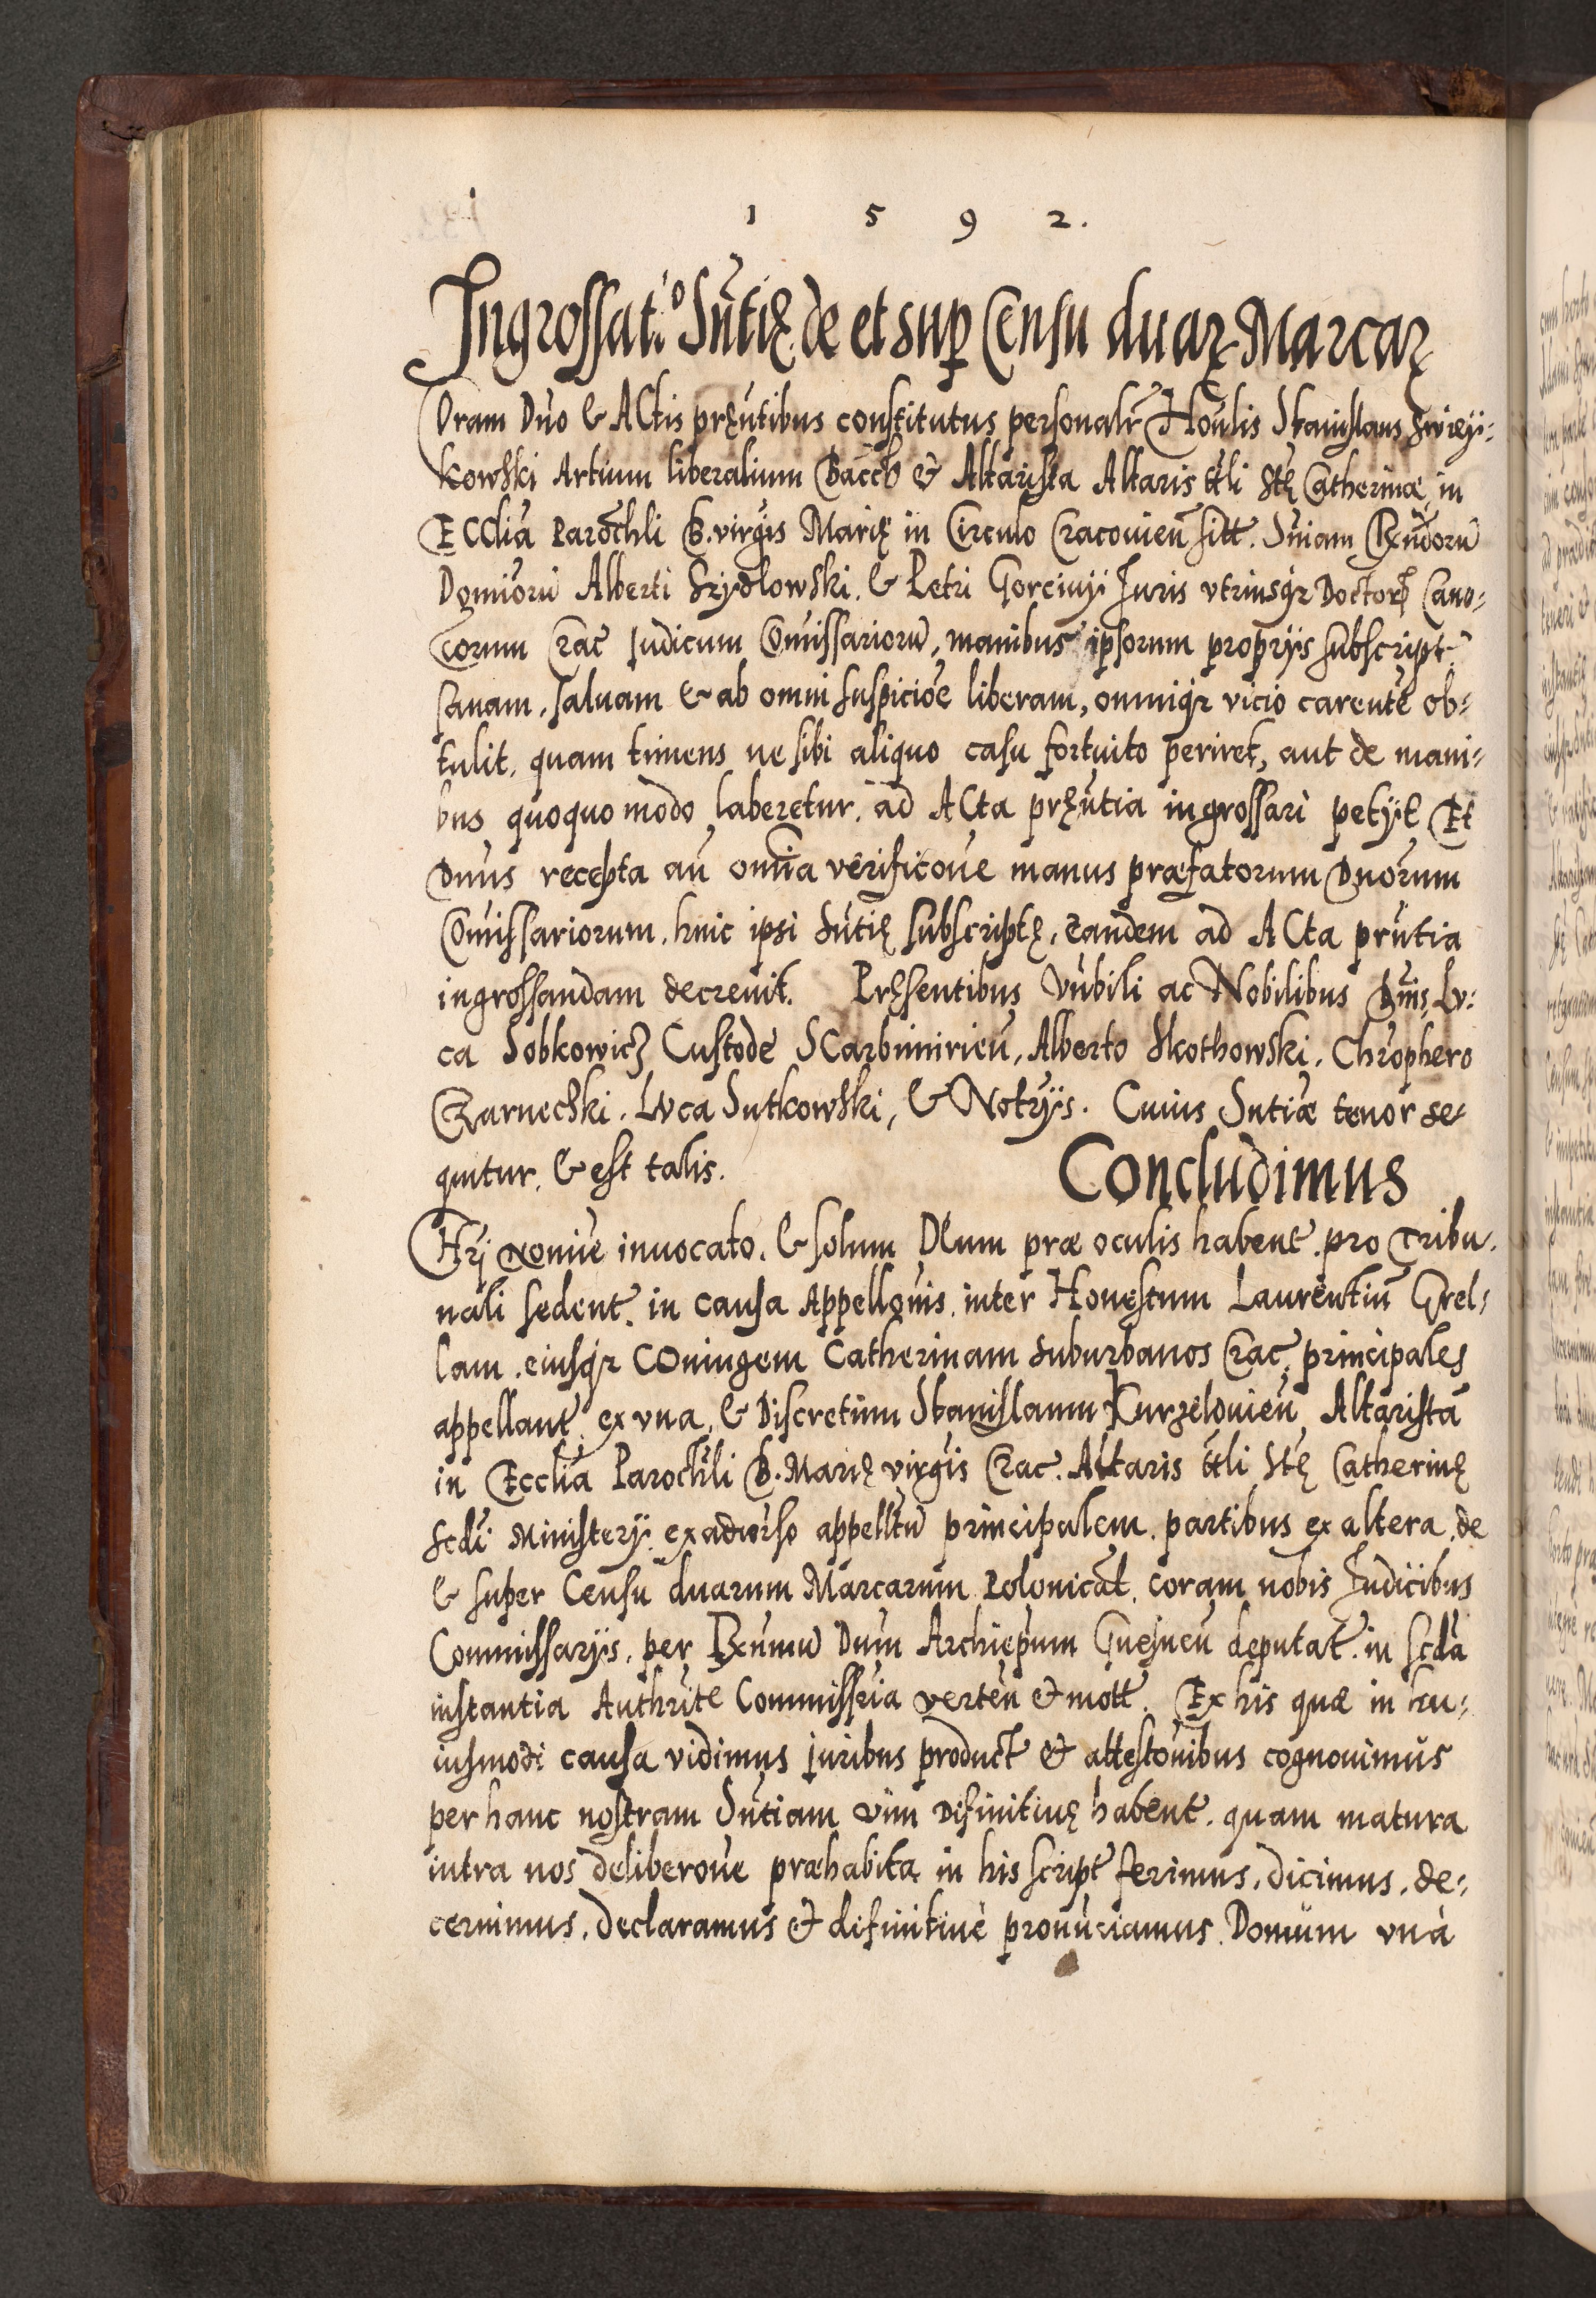 1 5 9 2.
Ingrossat.o Sñtię de et sup Censu duaꝝ Marcaꝝ
Coram Dño & ACtis pręñtibus constitutus personalr Hoñlis Stanislaus
kowski Artium liberalium Bacc & Altarista Altaris ttli Stę Catherinæ in
ECClia Parochli B. virgis Marię in Circulo Cracovieñ sitt. Sñiam Rxñdorũ
Domiorũ Alberti Szydlowski. & Petri Gorciuÿ Juris vtriusqꝫ Doctoꝝ Cano-
corum Crac Judicum Comissariorũ, manibus ipsorum proprÿs subscript
sanam, saluam & ab omni suspicioe liberam, omniqꝫ vicio carentẽ ob-
tulit, quam timens ne sibi aliquo casu fortuito periret, aut de mani-
bus quoquo modo laberetur. ad ACta pręñtia ingrossari petÿt Et
Dñus recepta añ omĩa verificoñe manus præfatorum Dñorum
Comissariorum, huic ipsi Sñtię subscriptę, eandem ad ACta prñtia
ingrossandam decreuit. Pręsentibus Vñbili ac Nobilibus Dñis Lu-
ca Sobkowicz Custode SCarbimirieñ, Alberto Skothowski, Chrophero
Czarnechki. Luca Sutkowski, & Notrÿs. Cuius Sntiæ tenor se-
quitur, & est talis. Concludimus
CHri nomĩe inuocato, & solum DEum præ oculis habent. pro Tribu-
nali sedent. in causa Appellõnis inter Honestum Laurentiũ Grel-
lam, eiusqꝫ COniugem Catherinam suburbanos Crac. principales
appellant ex vna, & Discretum Stanislaum Kurzelouieñ Altaristã
in Ecclia Parochli B. Marię virgis Crac. Altaris ttli Stę Catherinę
Scdi Ministerÿ. ex aduerso appelltũ principalem, partibus ex altera, de
& super Censu duarum Marcarum Polonicał. coram nobis Judicibus
Commissarÿs, per Rxñmũ Dñm Archiepum Gnesneñ deputat. in Scda
instantia Authrite Commissria verteñ & mott. Ex his quæ in hu-
iusmodi causa vidimus juribus product & attestoñibus cognouimus
per hanc nostram Sñtiam vim Difinitiuę habent. quam matura
intra nos deliberoñe præhabita in his script ferimus, dicimus, de-
cernimus, declaramus & difinitiuè pronũciamus. Domũm vnà